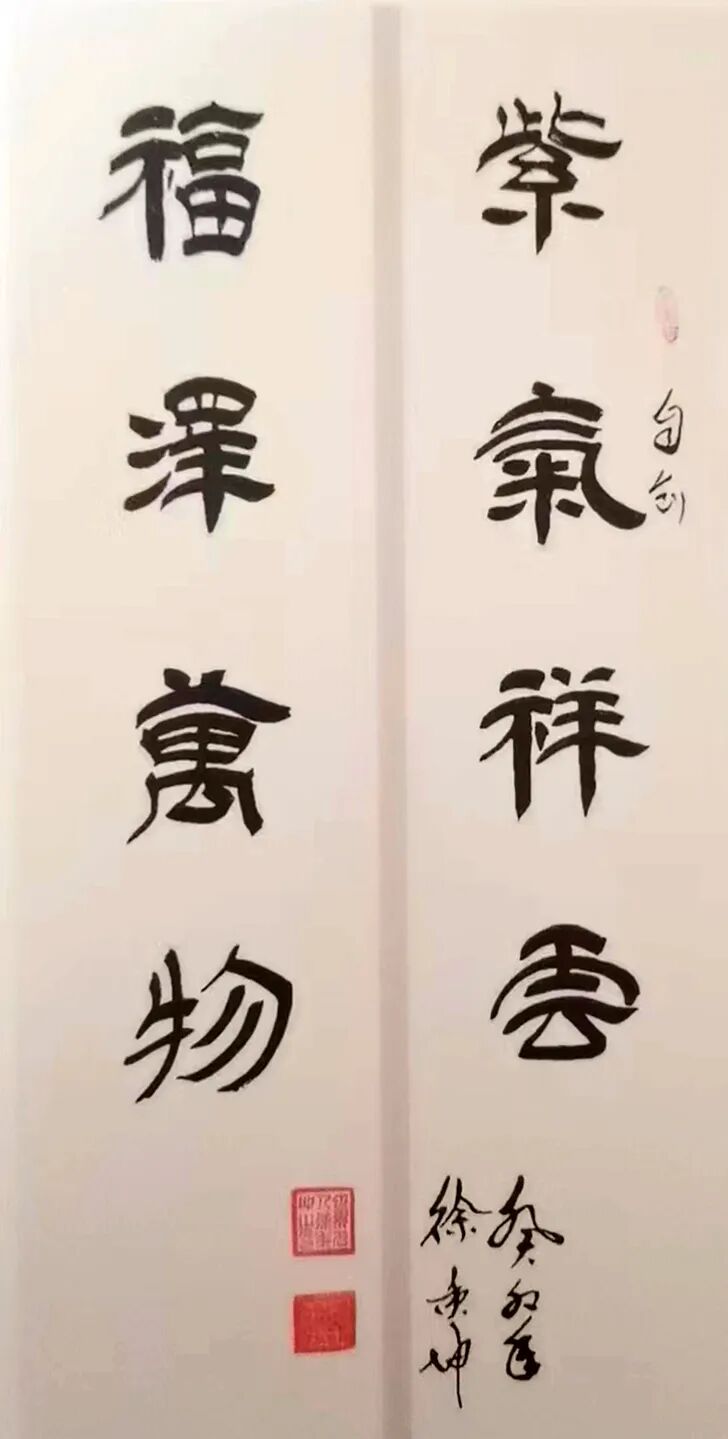 自创
紫氣祥雲
癸卯年
徐 坤
福澤萬物